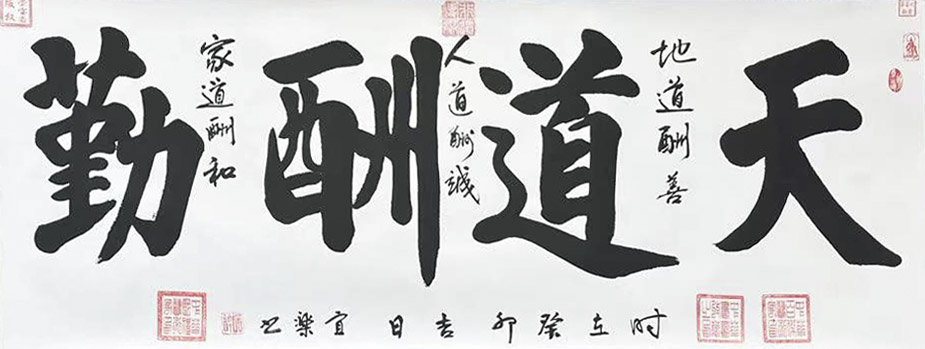 天道酬勤
地道酬善
人道酬誠
家道酬和
时在癸卯吉日宜樂书